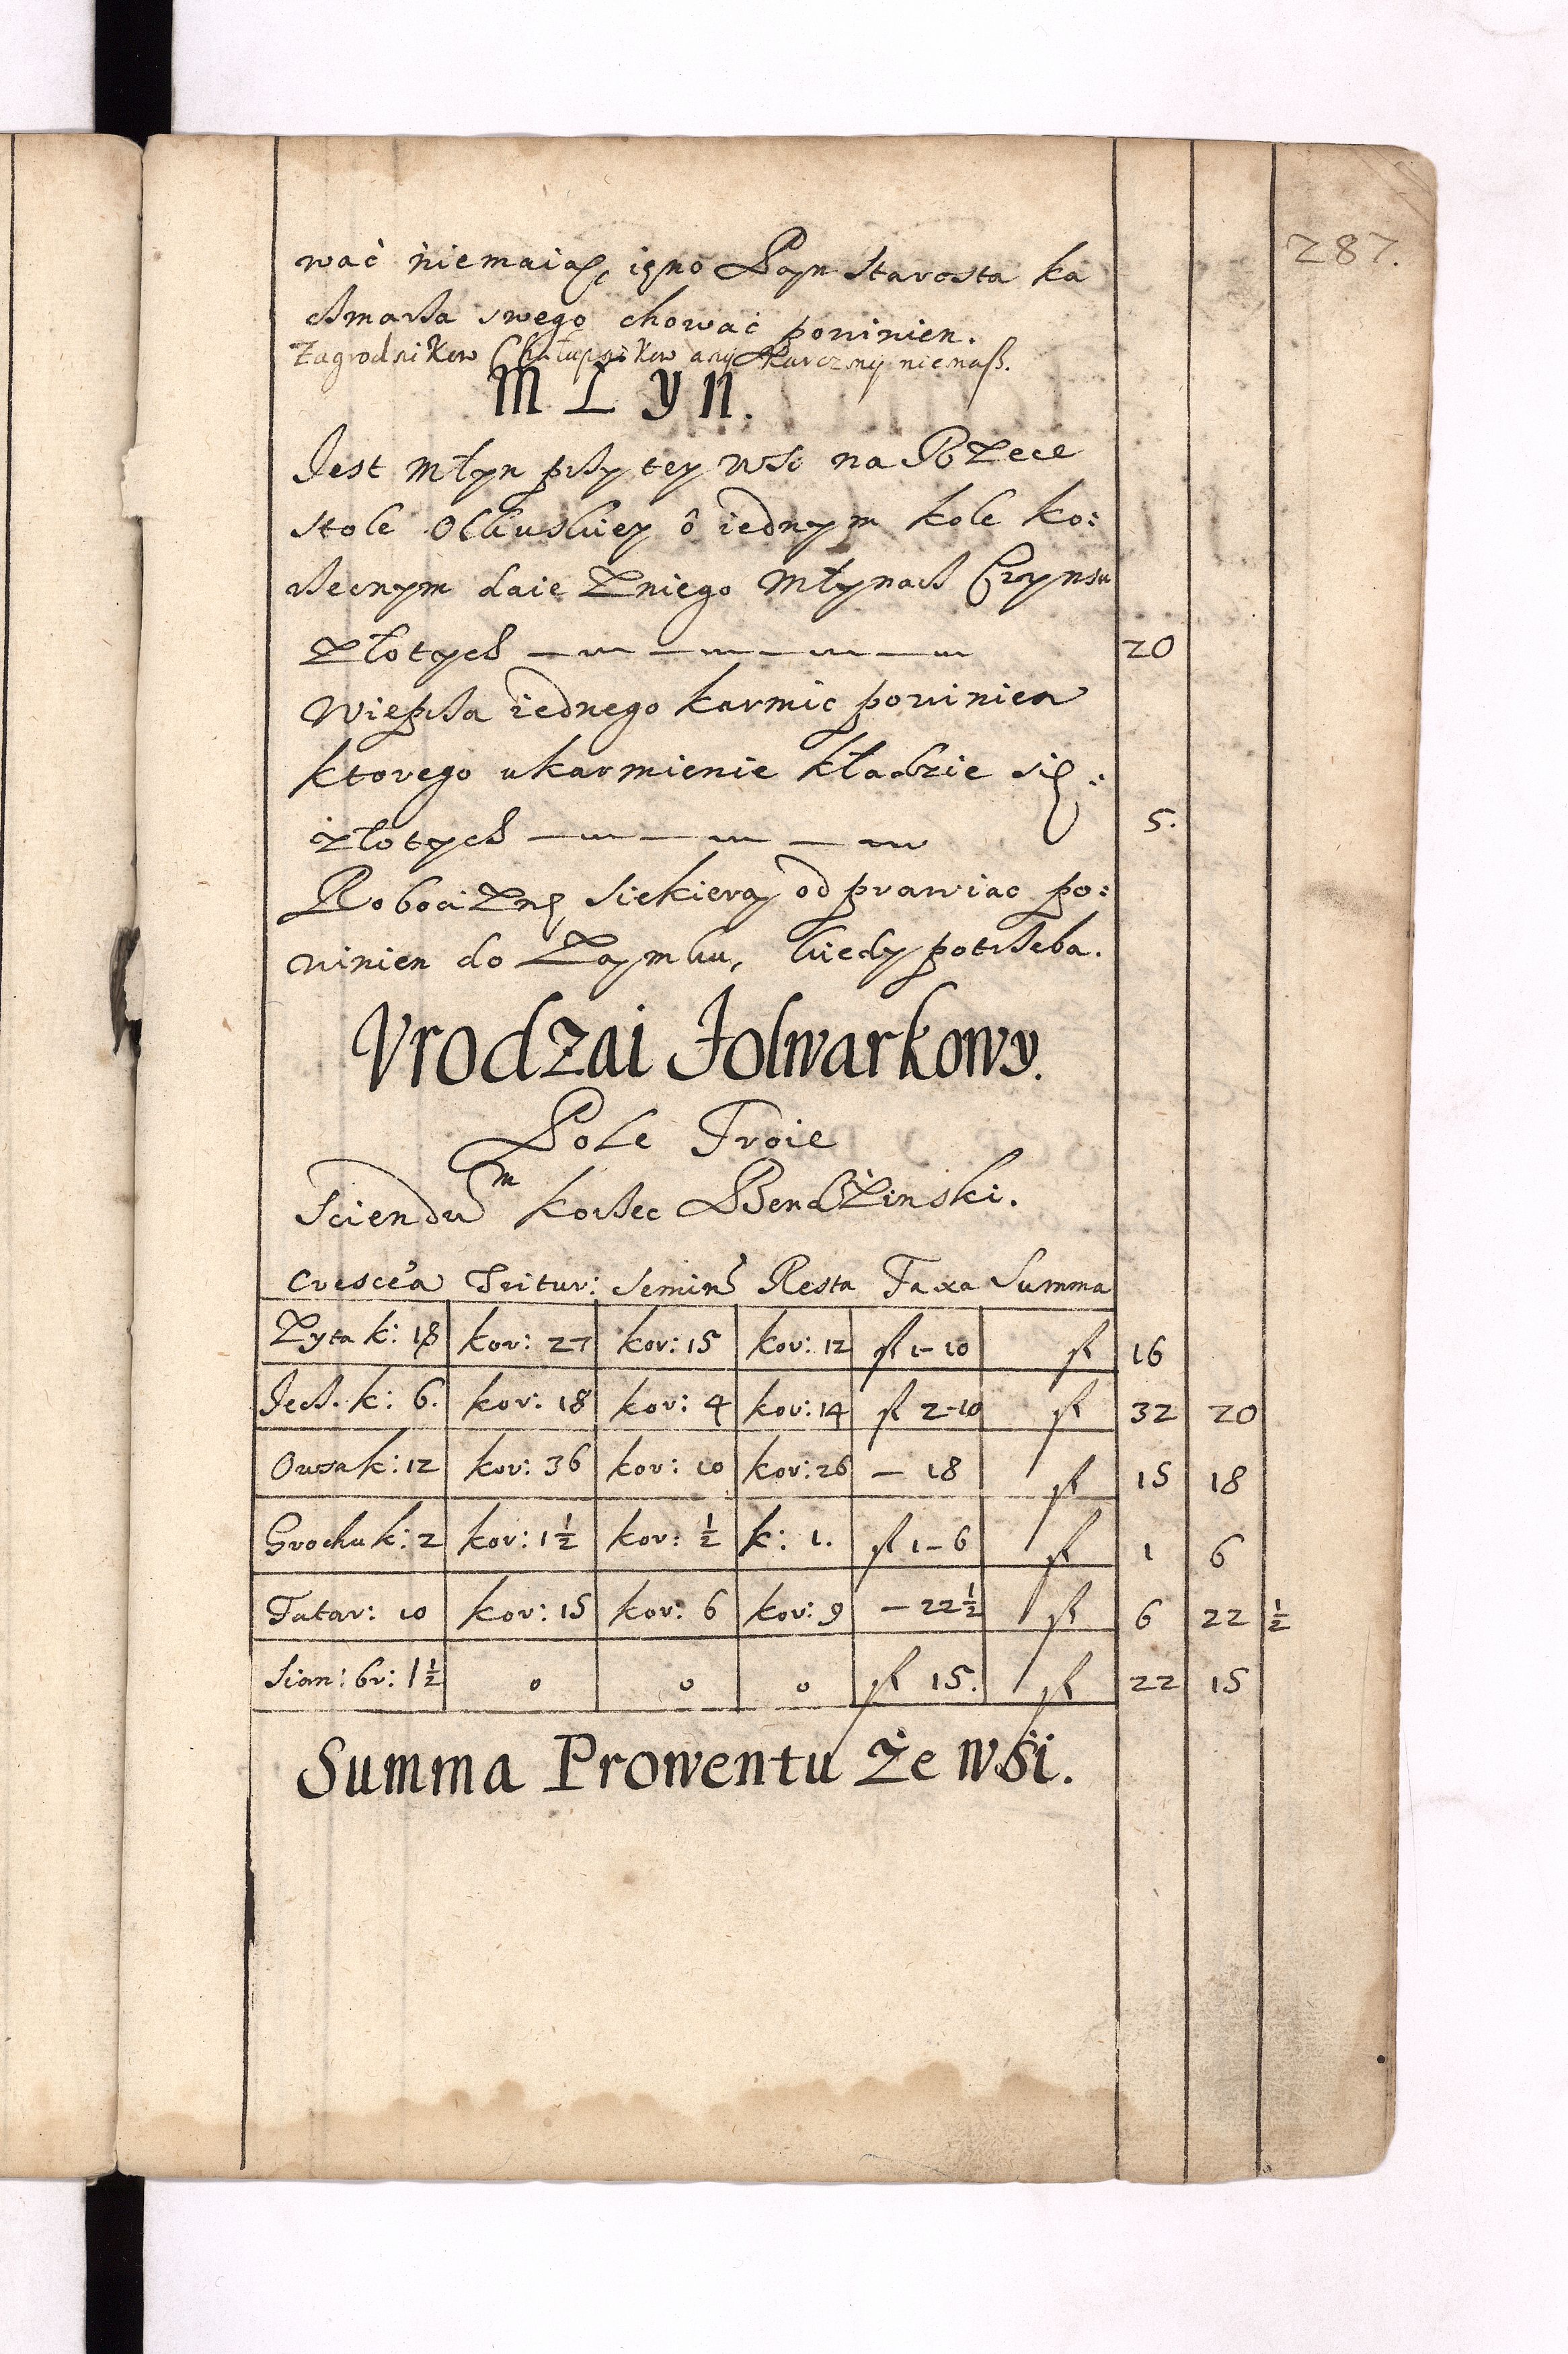 287.
wać niemaią, ieno Pan Starosta ka
czmarza swego chować powinien.
Zagrodnikow Chałupnikow any Karczmy niemasz.
MŁyn.
Jest Młyn przy tey wsi na Rzece
Stole Olkuskiey ô iednym kole ko:
rzecznym daie z niego Młynarz Czynsu
złotych 20
Wieprza iednego karmic powinien
ktorego ukarmienie kładzie się:
złotych 5.
Robociznę siekierą odprawiac po:
winien do Zamku, kiedy potrzeba.
Vrodzai Folwarkowy.
Pole Troie
Sciendum korzec Bendzinski.
Cresce'a Tritur: Semin Resta Taxa Summa
Zyta k: 18 kor: 27 kor: 15 kor: 12 fl 1-10 fl 16
Jecz. k: 6. kor: 18 kor: 4 kor: 14 fl 2-10 fl 32 20
Owsa k: 12 kor: 36 kor: 10 kor: 26 - 18 fl 15 18
Grochu k: 2 kor: 1½ kor: ½ k: 1. fl 1-6 fl 1 6
Tatar: 10 kor: 15 kor: 6 kor: 9 - 22½ fl 6 22 ½
Sian: br: 1½ 0 0 0 fl 15. fl 22 15
Summa Prowentu Ze wsi.